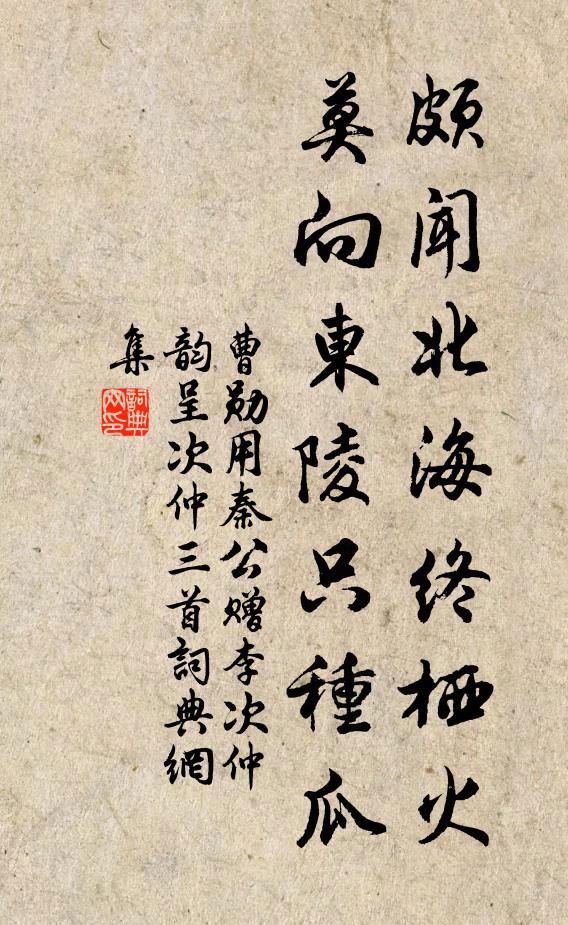 頗聞北海終栖火
莫向東陵只種瓜
曹勛用秦公贈李次仲
韵呈次仲三首詞典網
集
詞典
网印